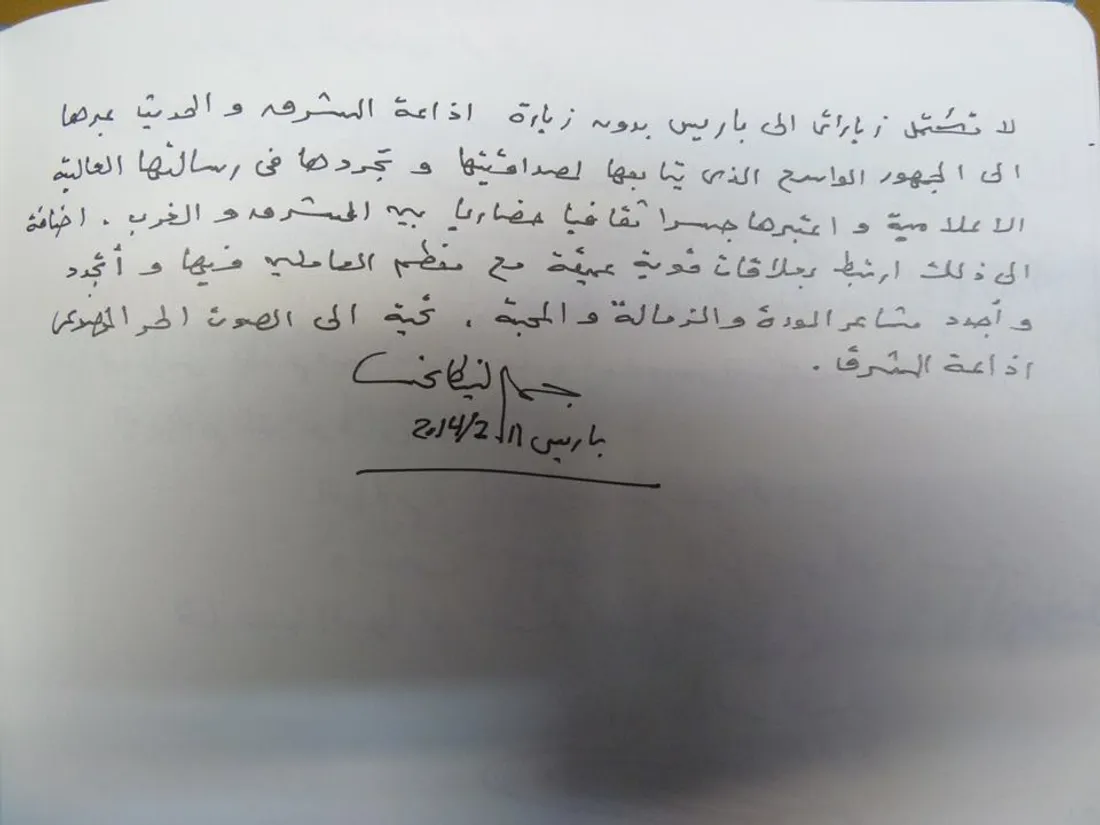 لا تكتمل زياراتى الى باريس بدون زيارة اذاعة الشرق و الحديث عبرها
الى الجمهور الواسع الذى يتابعها لصداقيتها و تجردها فى رسالتها العالية
الاعلامية و اعتبرها جسرا ثقافيا حضاريا بين الشرق و الغرب . اضافة
الى ذلك ارتبط بعلاقات قوية عميقة مع معظم العاملين فيها و أتجدد
و أجدد مشاعر المودة والزمالة و المحبة . تحية الى الصوت الحر
اذاعة الشرق .
باريس 2014/2/11